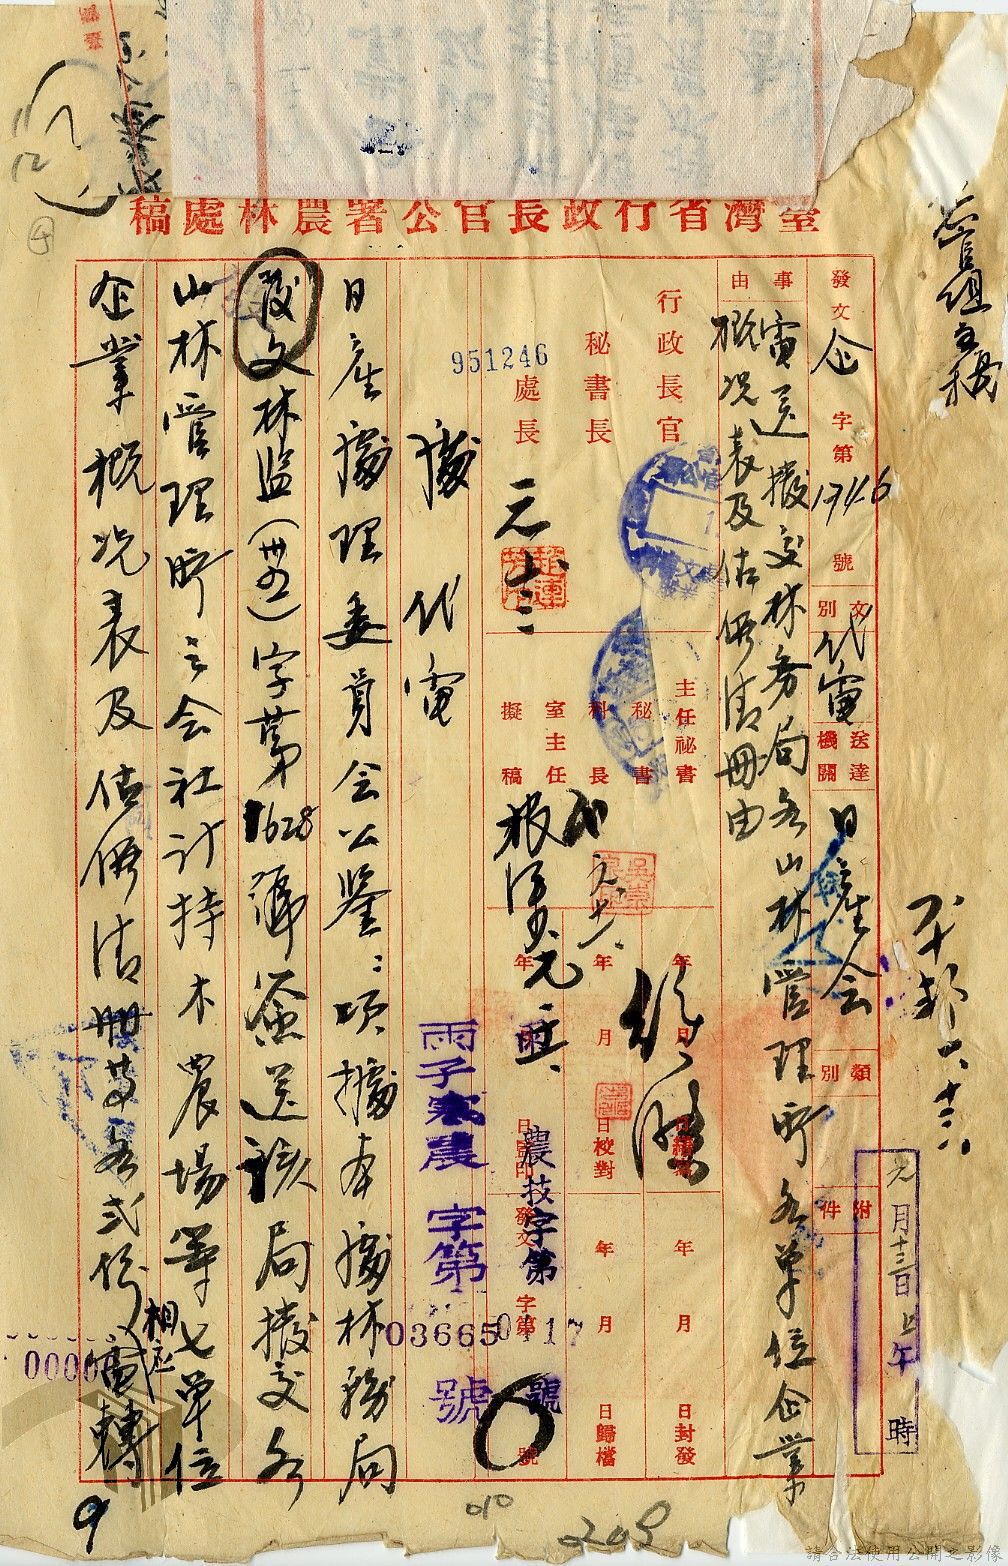 臺灣省行政長官公署農林處稿
發文 企 字第 1746 號
文別 代電
送達機關 日產会
類別
附件
元月十三日上午 時
事由
電送撥交林务局各山林管理所各單位企業
概况表及估價清冊由
行政長官
秘書長
處長 元十三
951246
主任秘書
秘書
科長
室主任
擬稿
年 月 日繕寫
年 月 日校對
年 月 日監印
年 月 日封發
年 月 日歸檔
發文 字第 號
農技字第 0117 號
雨子寒農 字第 03665 號
處代電
日產處理委員会公鑒：項據本處林務局
發文林監(卅五)字第1628號簽送該局撥交各
山林管理所之会社計持木農場等七單位
企業概况表及估價清冊等各弍份相应電轉
0000
010
209
9
請合法使用公開之影像